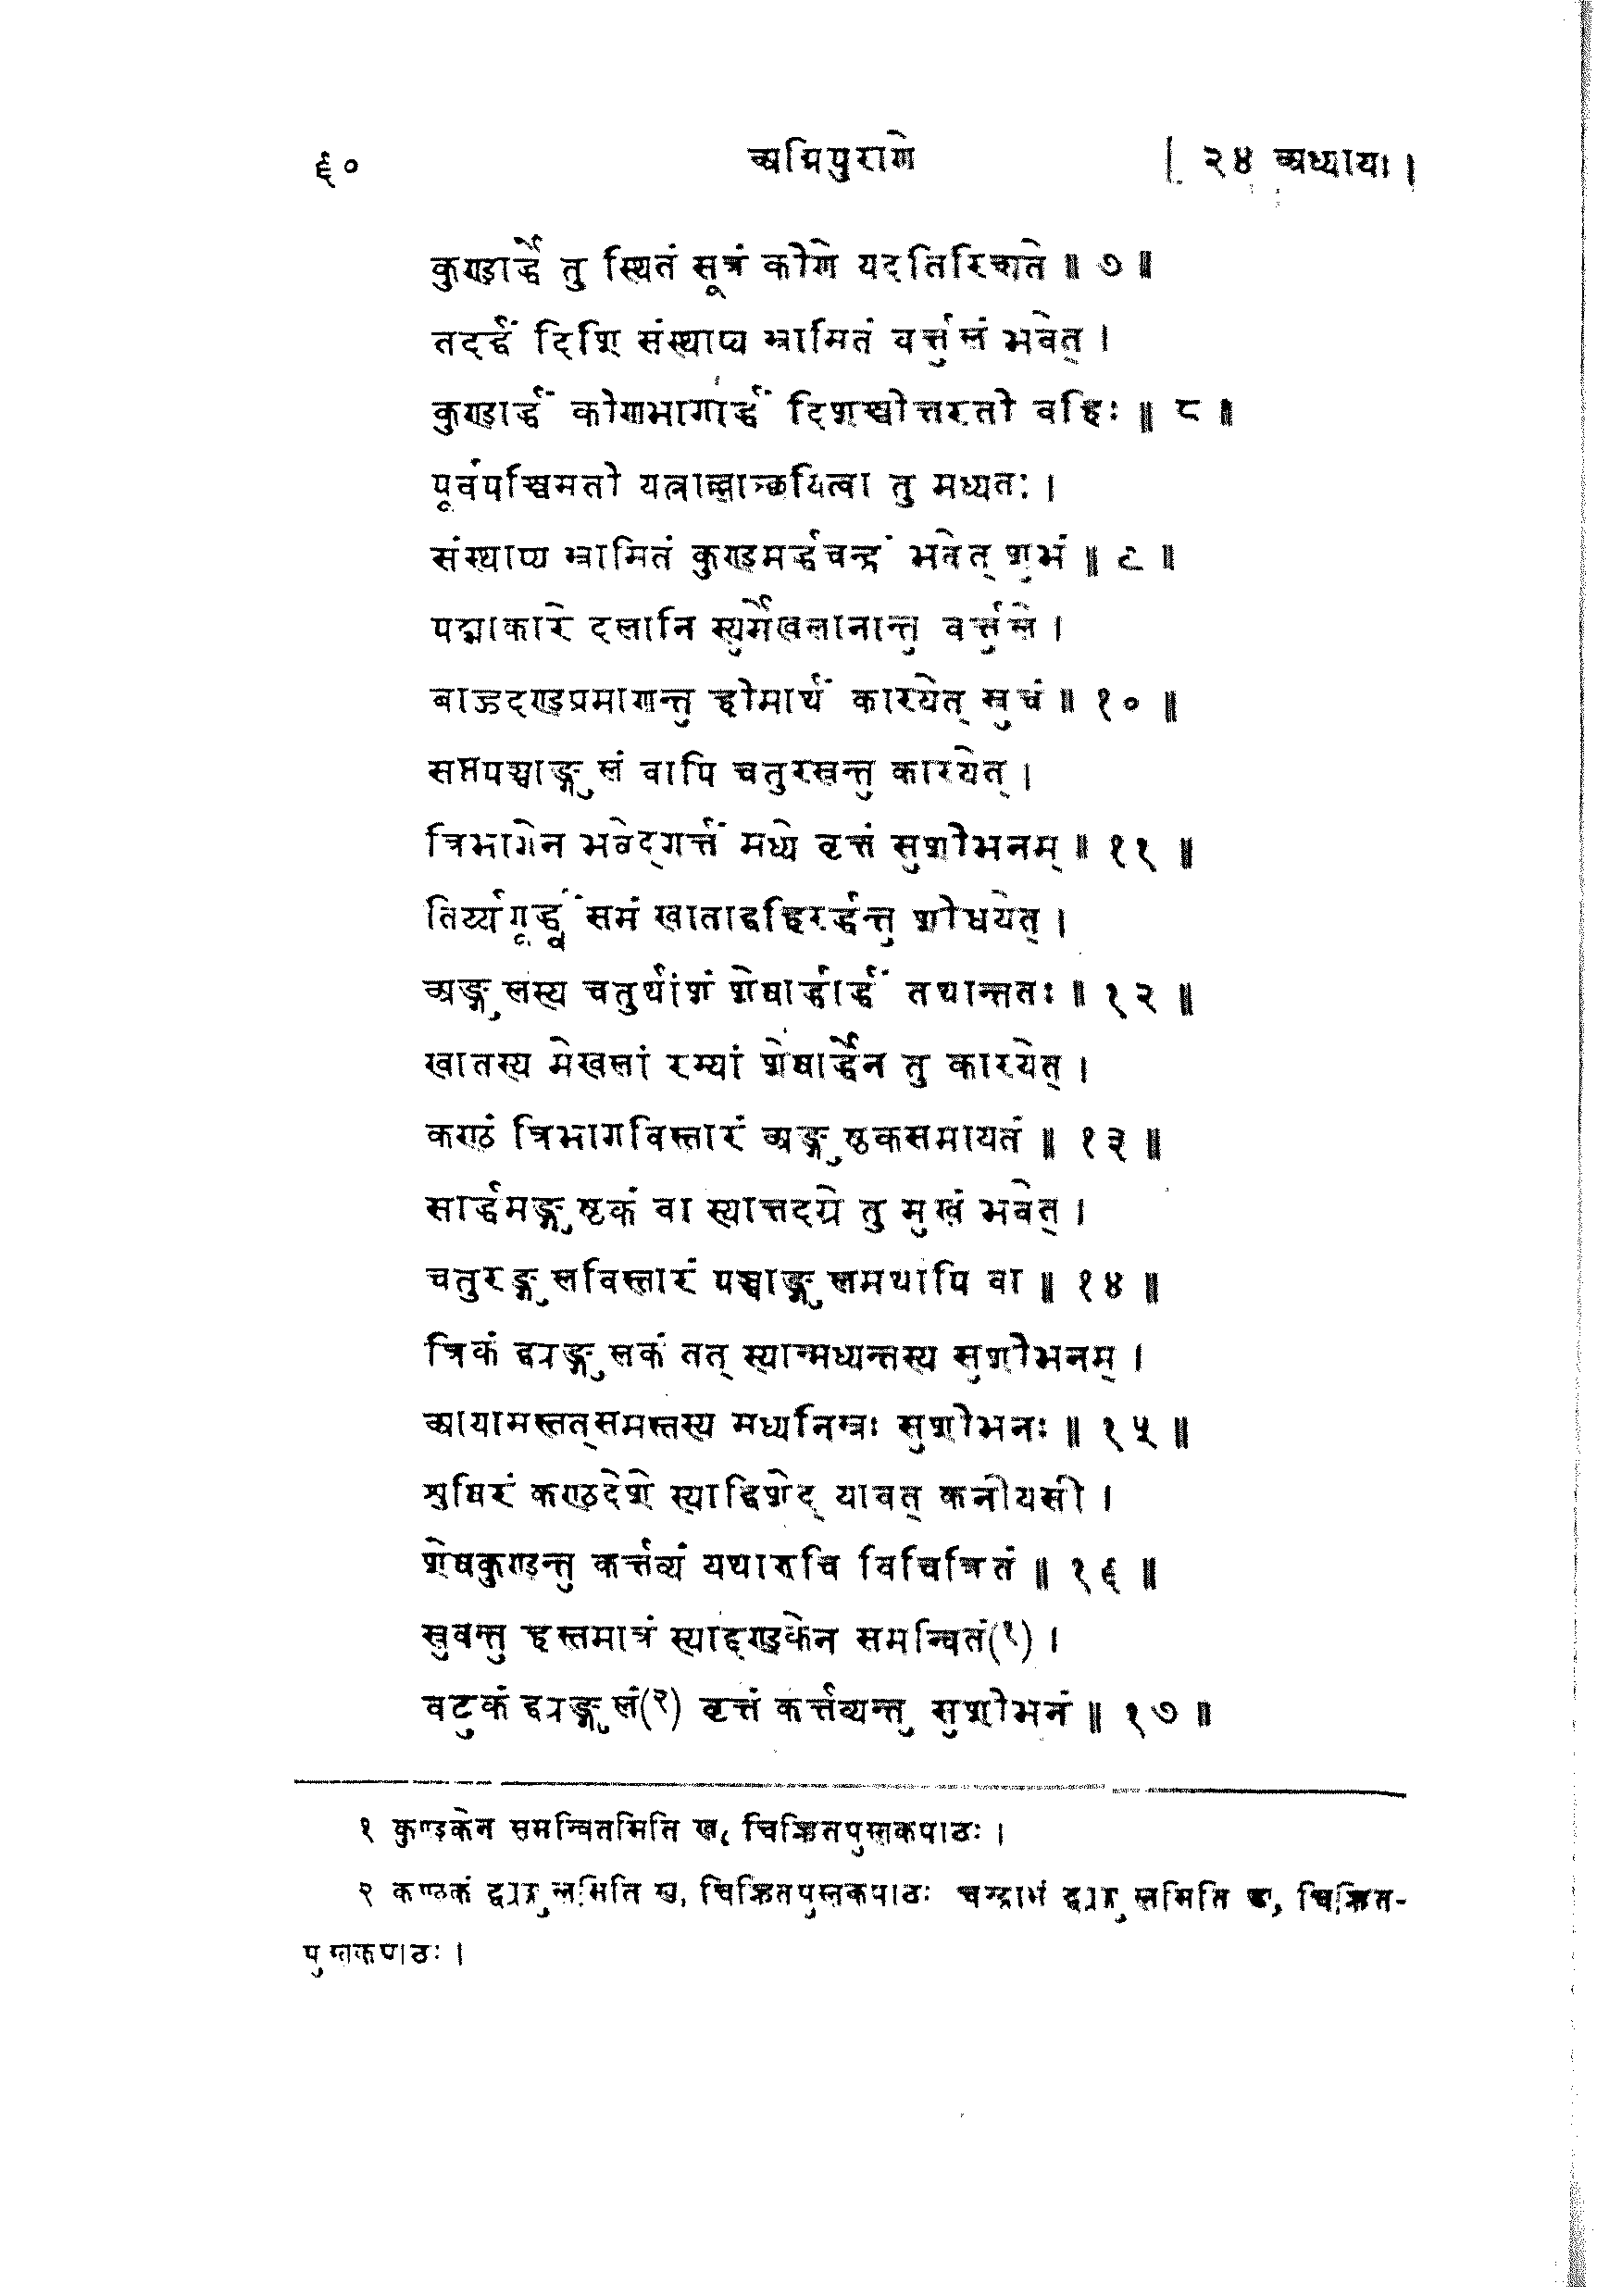 ६० अग्निपुराणे [ २४ अध्यायः ।
कुण्डार्द्धे तु स्थितं सूत्रं कोणे यदतिरिच्यते ॥ ७ ॥
तदर्द्धं दिशि संस्थाप्य भ्रामितं वर्त्तुलं भवेत् ।
कुण्डार्द्धं कोणभागार्द्धं दिशश्चोत्तरतो वहिः ॥ ८ ॥
पूर्वपश्चिमतो यत्नाल्लाञ्छयित्वा तु मध्यतः ।
संस्थाप्य भ्रामितं कुण्डमर्द्धचन्द्रं भवेत् शुभं ॥ ९ ॥
पद्माकारे दलानि स्युर्मेखलानान्तु वर्त्तुले ।
बाहुदण्डप्रमाणन्तु होमार्थं कारयेत् स्रुचं ॥ १० ॥
सप्तपञ्चाङ्गुलं वापि चतुरस्रन्तु कारयेत् ।
त्रिभागेन भवेद्गर्त्तं मध्ये वृत्तं सुशोभनम् ॥ ११ ॥
तिर्य्यगूर्द्ध्वं समं खाताद्वहिरर्द्धन्तु शोधयेत् ।
अङ्गुलस्य चतुर्थांशं शेषार्द्धार्द्धं तथान्ततः ॥ १२ ॥
खातस्य मेखलां रम्यां शेषार्द्धेन तु कारयेत् ।
कण्ठं त्रिभागविस्तारं अङ्गुष्ठकसमायतं ॥ १३ ॥
सार्द्धमङ्गुष्टकं वा स्यात्तदग्रे तु मुखं भवेत् ।
चतुरङ्गुलविस्तारं पञ्चाङ्गुलमथापि वा ॥ १४ ॥
त्रिकं द्व्यङ्गुलकं तत् स्यान्मध्यन्तस्य सुशोभनम् ।
आयामस्तत्समस्तस्य मध्यनिम्नः सुशोभनः ॥ १५ ॥
शुषिरं कण्ठदेशे स्याद्विशेद् यावत् कनीयसी ।
शेषकुण्डन्तु कर्त्तव्यं यथारुचि विचित्रितं ॥ १६ ॥
स्रुवन्तु हस्तमात्रं स्याद्दण्डकेन समन्वितं(१) ।
वटुकं द्व्यङ्गुलं(२) वृत्तं कर्त्तव्यन्तु सुशोभनं ॥ १७ ॥
१ कुण्डकेन समन्वितमिति ख, चिह्नितपुस्तकपाठः ।
२ कण्ठकं द्व्यङ्गुलमिति ख, चिह्नितपुस्तकपाठः चन्द्राभं द्व्यङ्गुलमिति ङ, चिह्नित-
पुस्तकपाठः ।